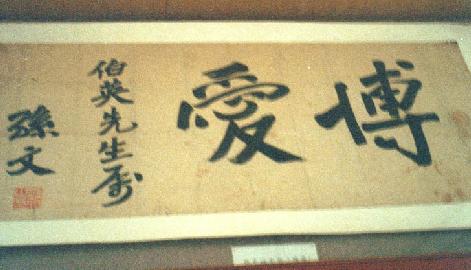 博愛
伯英先生属
孫文